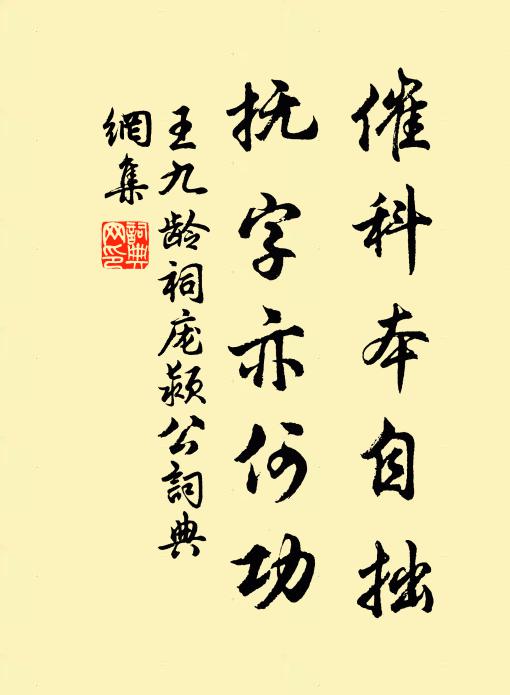 催科本自拙
抚字亦何功
王九龄祠庞颍公詞典
網集
詞典
网印